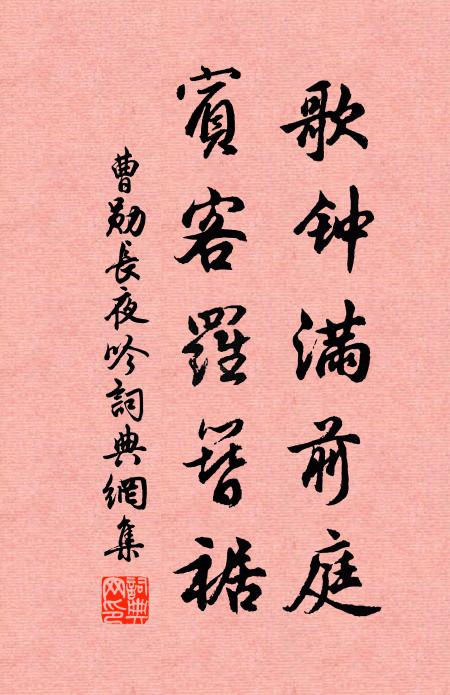 歌钟满前庭
賓客羅簪裾
曹勛長夜吟詞典網集
詞典網印